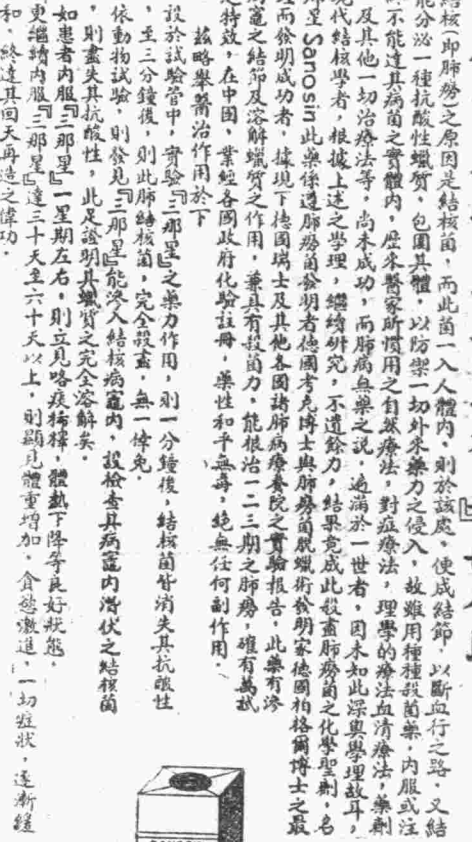 結核(即肺癆)之原因是結核菌,而此菌一入人體內,則於該處,便成結節,以斷血行之路,又結
能分泌一種抗酸性蠟質,包圍其體,以防禦一切外來藥力之侵入,故雖用種種殺菌藥,內服或注
不能達其病菌之實體內,歷來醫家所慣用之自然療法,對症療法,理學的療法血清療法,藥劑
及其他一切治療法等,尚未成功,而肺病無藥之說,遍滿於一世者,因未知此深奧學理故耳,
現代結核學者,根據上述之學理,繼續研究,不遺餘力,結果竟成此殺盡肺癆菌之化學聖劑,名
那星 Sanosin 此藥係遵肺癆菌發明者德國考克博士與肺癆菌脫蠟術發明家德國柏格爾博士之最
理而發明成功者,據現下德國瑞士及其他各國諸肺病療養院之實驗報告,此藥有滲
則竈之結節及溶解蠟質之作用,兼具有殺菌力,能根治一二三期之肺癆,確有萬試
之特效,在中国,業經各國政府化驗註冊,藥性和平無毒,絕無任何副作用.
茲略舉醫治作用於下
設於試驗管中,實驗『三那星』之藥力作用,則一分鐘後,結核菌皆消失其抗酸性
,至三分鐘後,則此肺結核菌,完全殺盡,無一倖免.
依動物試驗,則發見『三那星』能滲入結核病竈內,設檢查其病竈內潛伏之結核菌
,則盡失其抗酸性,此足證明其蠟質之完全溶解矣.
如患者內服『三那星』一星期左右,則立見咯痰稀釋,體熱下降等良好狀態.
更繼續內服『三那星』達三十天至六十天以上,則顯見體重增加,食慾激進,一切症狀,逐漸緩
和,終達其回天再造之偉功.